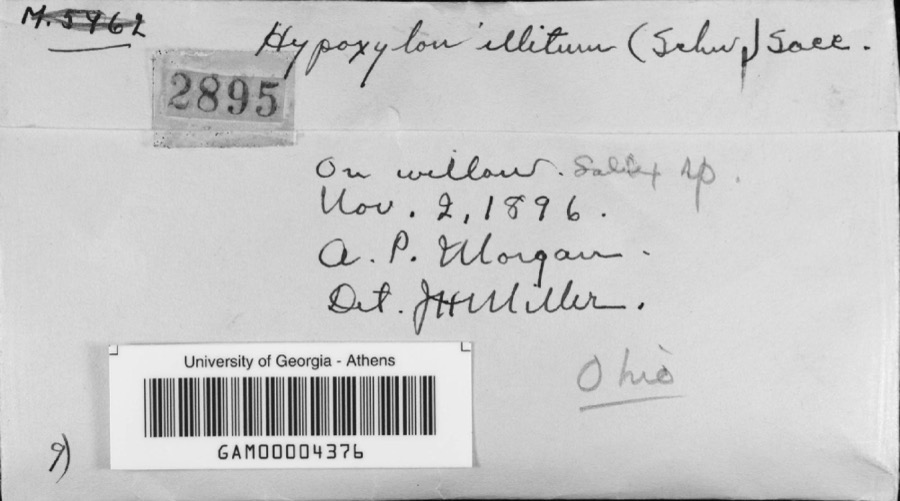 M. 5462
Hypoxylon illitum (Schw) Sacc.
2895
On willow. Salix sp.
Nov. 2, 1896.
A. P. Morgan.
Det. JHMiller.
Ohio
University of Georgia - Athens
GAM00004376
9)